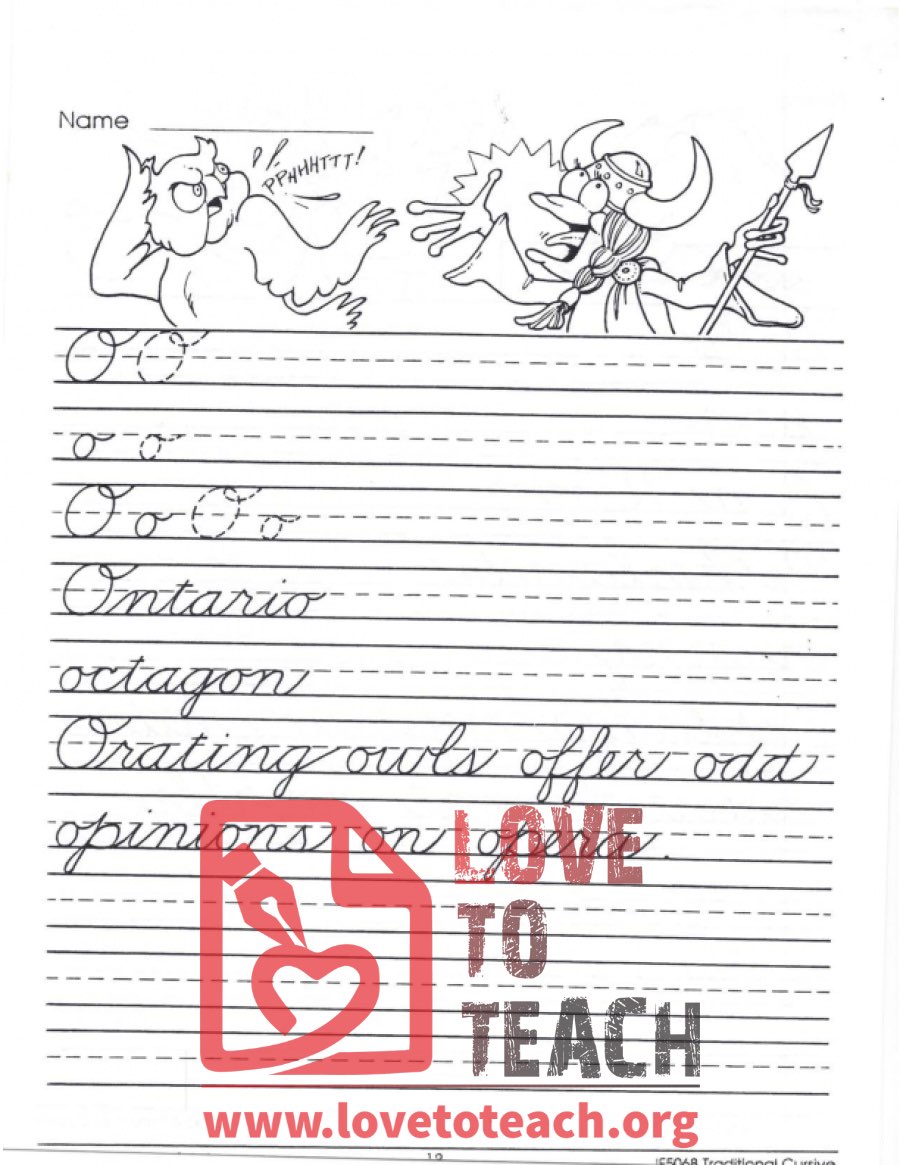 Name
PPHHHTTT!
O O
o o
O o O o
Ontario
octagon
Orating owls offer odd
opinions on opera.
LOVE
TO
TEACH
www.lovetoteach.org
19
IF5068 Traditional Cursive